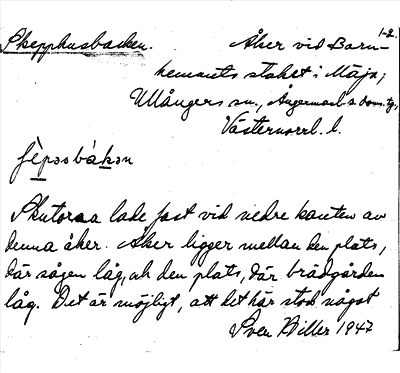 1-2.
Skepphusbacken. Åker vid Barn-
hemmets staket i Mäja;
Ullångers sn., Ångermanl:s doms.tg,
Västernorrl. l.
Skutorna lade fast vid nedre kanten av
denna åker. Åker ligger mellan den plats,
där sågen låg, och den plats, där brädgården
låg. Det är möjligt, att det här stod något
Sven Hiller 1947